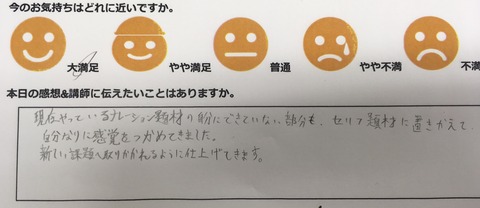 今のお気持ちはどれに近いですか。
大満足 やや満足 普通 やや不満 不満
本日の感想&講師に伝えたいことはありますか。
現在やっているナレーション題材の粉にできていない部分も、セリフ題材に置きかえて、
自分なりに感覚をつかめてきました。
新しい課題へ取りかかれるように仕上げてきます。